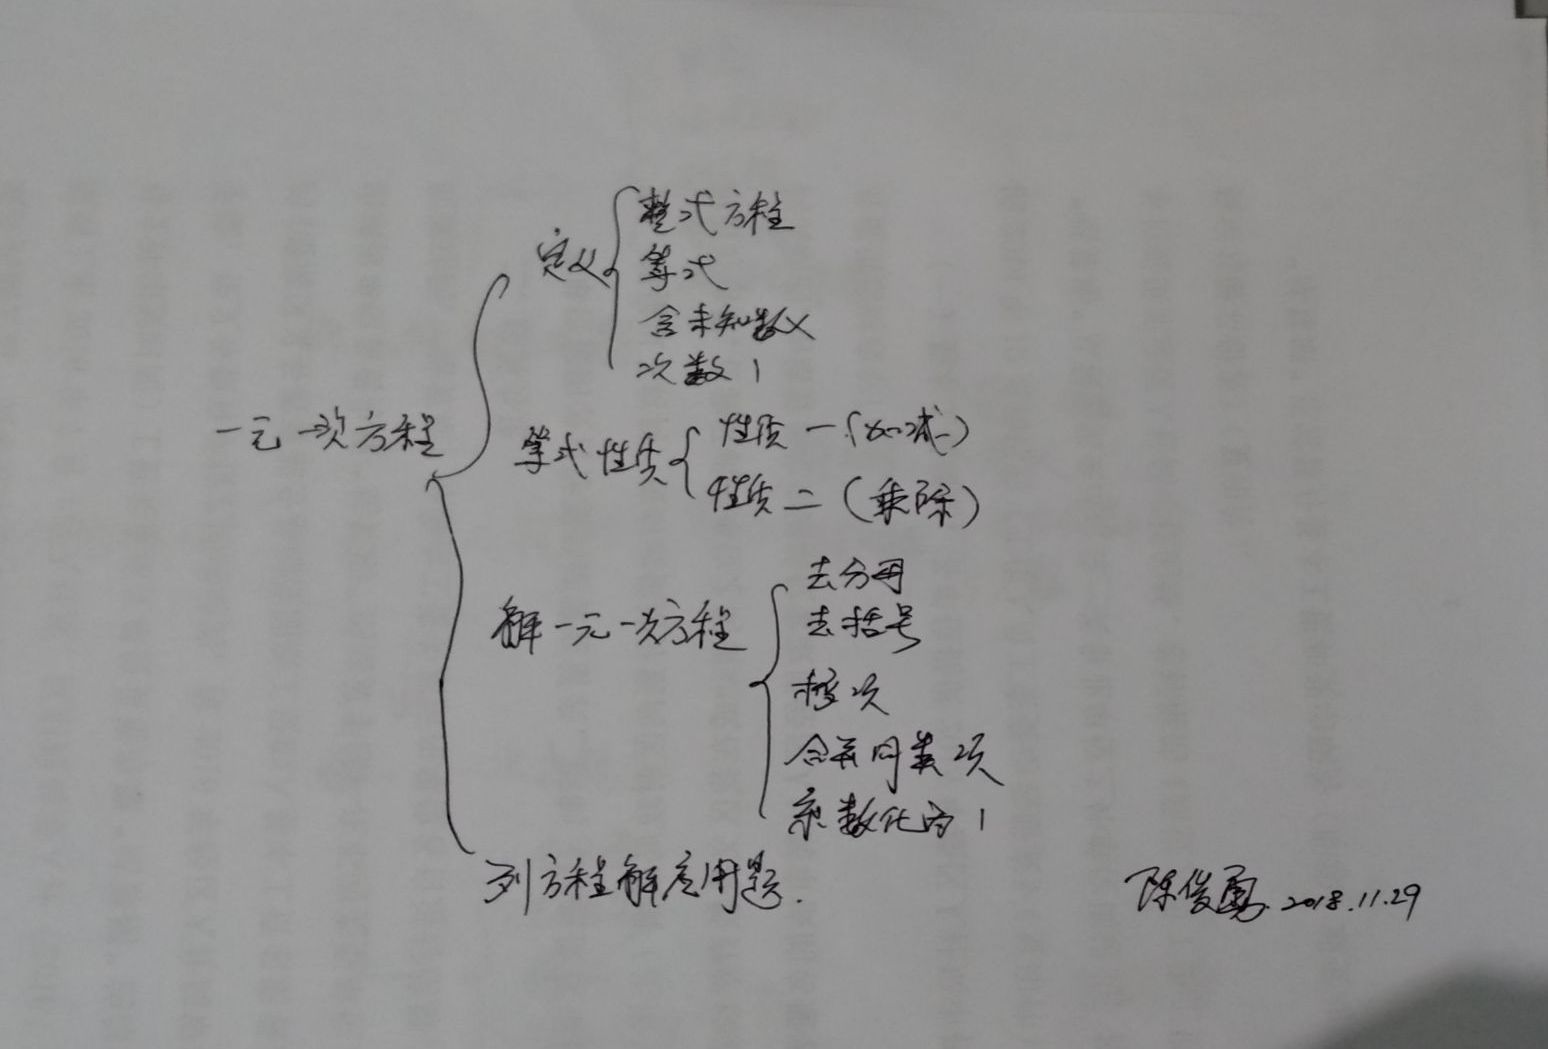 整式方程
定义
等式
含未知数x
次数1
一元一次方程
等式性质
性质一(加减)
性质二(乘除)
去分母
解一元一次方程
去括号
移项
合并同类项
系数化为1
列方程解应用题.
陈俊勇 2018.11.29